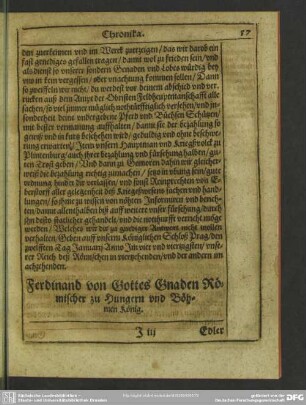 Chronika. 57
den zuerkennen vnd im Werck zuerzeigen / das wir darob ein
fast genediges gefallen tragen / damit wol zu frieden sein / vnd
als dienst so vnserer sondern Genaden vnd Lobes würdig bey
vns in kein vergessen / oder vnachtung kommen sollen / Dann
so zweiffeln wir nicht / du werdest vor deinem abschied vnd ver-
rucken auß dem Ampt der Obristen Feldhauptmanschafft alle
sachen / so viel jmmer müglich notdürfftiglich versehen / vnd in-
sonderheit deine vntergebene Pferd vnd Büchsen Schützen /
mit bester vermanung auffhalten / damit sie der bezahlung so
jnen
werung erwarten / Inmassen vnsern Hauptman vnd Kriegßvolck zu
Plintenburg / auch jhrer bezahlung vnd fürsehung halben / gu-
ten Trost geben / Vnd dann zu Gomorrn dahin wir gleicher-
weiß die bezahlung richtig zumachen / jetzo in vbung sein / gute
ordnung hinder dir verlassen / vnd sonst
berstorff aller gelegenheit deß Kriegßwesens sachen vnd hand-
lungen / so jhme zu wissen von nöten Informiren vnd berich-
ten / damit allenthalben biß auff weiter vnser fürsehung durch
jhn dißfals stadlicher gehandelt / vnd die notturfft vermehrt möge
werden / Welches wir dir zu gnediger Antwort nicht wollen
verhalten / Geben auff vnserm Königlichen Schloß Prag / den
zwelfften Tag January Anno Im vier vnd viertzigsten / vnse-
rer Reich deß Römischen im vierzehenden / vnd der andern im
achzehenden.
Ferdinand von Gottes Gnaden Rö-
mischer zu Hungern vnd Böh-
men König.
J iij Edler